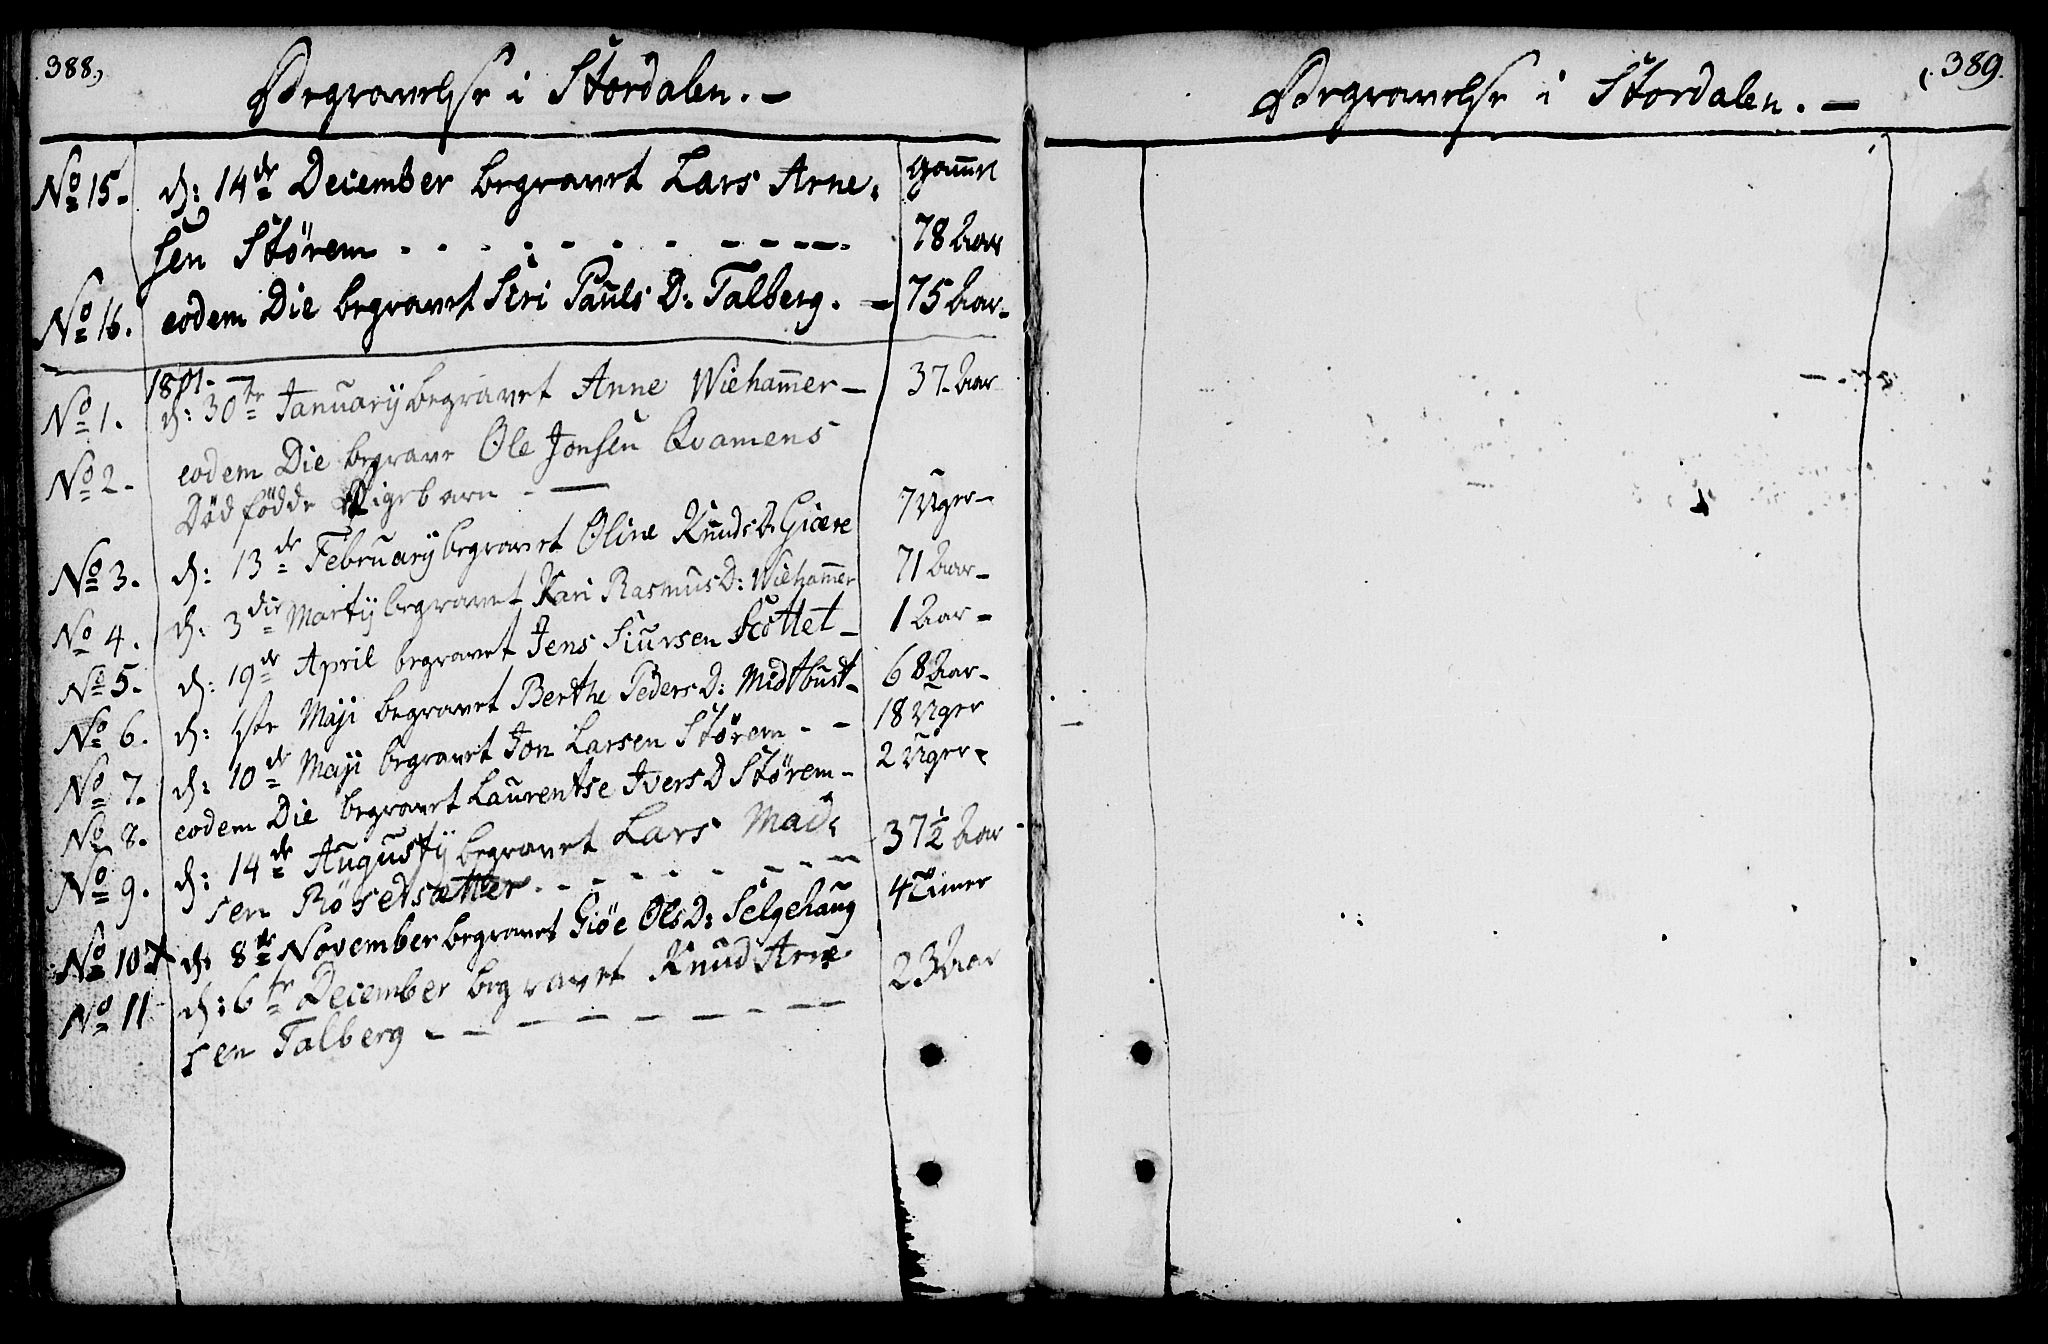 388,
Begravelse i Stordalen. –
No 15. d: 14de December begravet Lars Arne: gaml
sen Störem - - - - - - - - - - 78 Aar
No 16. eodem Die begravet Siri Pauls D: Talberg. – 75 Aar-
1801. –
No 1. d: 30te Januarij begravet Anne Wieham̄er – 37. Aar
No 2. eodem Die begrave Ole Jonsen Qvamens
Död födde Pigebarn - –
No 3. d: 13de February begravet Oline Knuds D. Giære 7 Uger –
No 4. d: 3die Martij begravet Kari Rasmus D: Wieham̄er 71 Aar –
No 5. d: 19de April begravet Jens Siursen Scottet – 1 Aar –
No 6. d: 1ste Maji begravet Berthe Peders D: Midtbust – 68 Aar –
No 7. d: 10de Maji begravet Jon Larsen Störem - - 18 Uger
No 8. eodem Die begravet Laurentse Ivers D Störem – 2 Uger –
No 9. d: 14de Augustij begravet Lars Mad: 37 1/2 Aar
sen Rösetsætter - - - - - - - -
No 10 d: 8de November begravet Giöe Ols D: Selgehaug 4 Timer
No 11 d: 6te December begravet Knud Arne 23 Aar
sen Talberg - - - - - - - -
389.
Begravelse i Stordalen. –